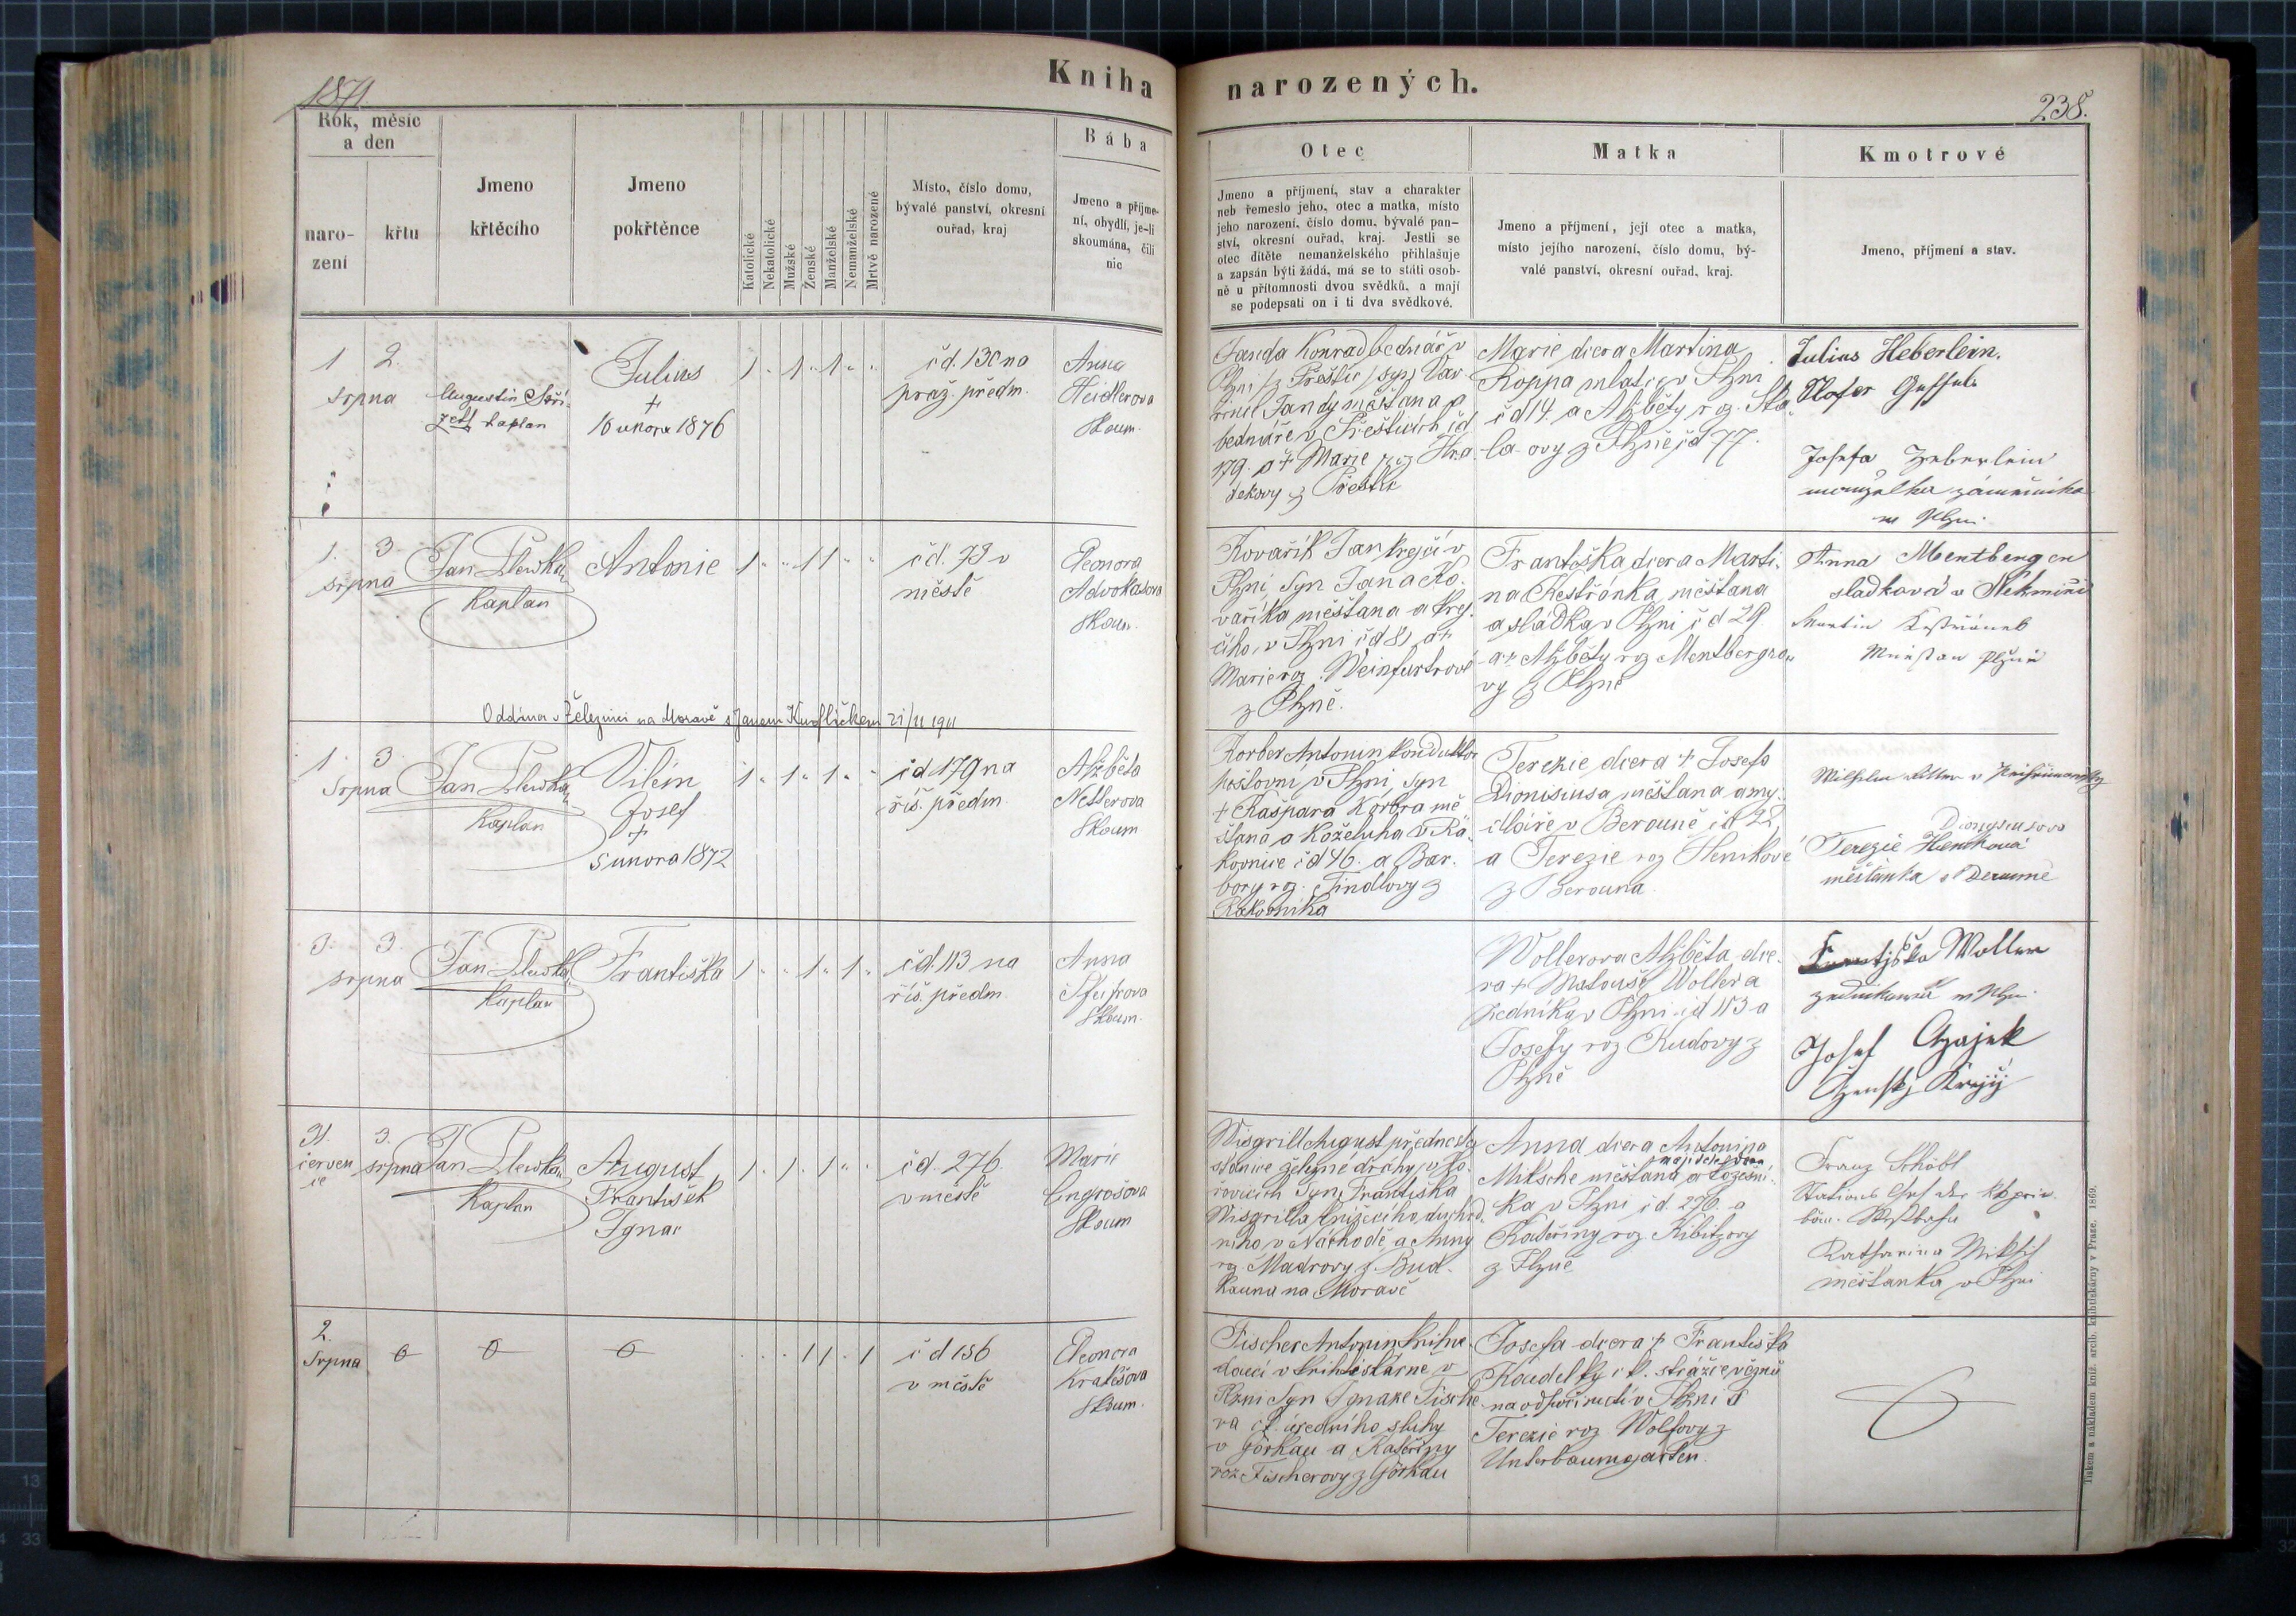 Kniha
narozených.
1871
238.
Rok, měsíc
a den
naro-
zení
křtu
Jmeno
křtěcího
Jmeno
pokřtěnce
Katolické
Nekatolické
Mužské
Ženské
Manželské
Nemanželské
Mrtvě narozené
Místo, číslo domu,
bývalé panství, okresní
ouřad, kraj
Bába
Jmeno a příjme-
ní, obydlí, je-li
skoumána, čili
nic
Otec
Jmeno a příjmení, stav a charakter
neb řemeslo jeho, otec a matka, místo
jeho narození, číslo domu, bývalé pan-
ství, okresní ouřad, kraj. Jestli se
otec dítěte nemanželského přihlašuje
a zapsán býti žádá, má se to státi osob-
ně u přítomnosti dvou svědků, a mají
se podepsati on i ti dva svědkové.
Matka
Jmeno a příjmení, její otec a matka,
místo jejího narození, číslo domu, bý-
valé panství, okresní ouřad, kraj.
Kmotrové
Jmeno, příjmení a stav.
1 2.
srpna
Augustin
kaplan
Julius
+
16 února 1876
1 1 1
čd. 130 na
praž. předm.
Anna
Heidlerova
skoum.
Janda Konrad bednář v
Plzni / z Přeštic / syn Vav-
řince Jandy měšťana a
bednáře v Přešticích čd
179. a + Marie roz. Hra-
dekovy z Přeštic
Marie dcera Martina
Roppa mlatce v Plzni
čd 14. a Alžběty rz. Ska-
la-ovy z Plzně čd 77.
Julius Heberlein.
Josefa Heberlein
manželka zámečníka
w Plzni
1. 3
srpna
Jan Plewka
Kaplan
Antonie
1 1 1
čd. 73 v
městě
Eleonora
Advokatova
skoum.
Kovařík Jan krejčí v
Plzni, syn Jana Ko-
vaříka měšťana a krej-
čího, v Plzni čd 81 a +
Marie roz. Weinfurtrové
z Plzně.
Františka dcera Marti-
na Kestřánka, měšťana
a sládka v Plzni čd 29
a + Alžběty rz Mentbergro-
vy z Plzně
Anna Mentberger
sladková v Nekmíři
Martin Kestřanek
Měšťan Plzně
Oddána v Železnici na Moravě s Janem 21/11 1911
1 3
Srpna
Jan Plewka
Kaplan
Vilém
Josef
+
5 unora 1872
1 1 1
čd 179 na
říš. předm.
Alžběta
Netlerova
Skoum
Korber Antonin konduktor
poštovní v Plzni, syn
+ Kašpara Korbra mě-
šťana a koželuha v Ra-
kovníce čd 46. a Bar-
bory roz. Tindlovy z
Rakovníka
Terezie dcera + Josefa
Dionisiusa měšťana a my-
dláře v Berouně čd 22,
a Terezie roz Henkové
z Berouna.
Dionysiusova
Terezie Henkova
měšťanka v Berouně
3. 3
srpna
Jan Plewka
Kaplan
Františka
1 1 1
čd. 113 na
říš. předm.
Anna
skoum.
Wollerova Alžběta dce-
ra + Matouše Wollera
zedníka v Plzni čd 113 a
Josefy roz Kudovy z
Plzně
Františka Woller
zedníkowá w Plzni
Josef Czajek
Ženský Krejý
31. 3.
červen srpna
ce
Jan Plewka
Kaplan
August
František
Ignac
1 1 1
čd. 276
v městě
Marie
Engrošova
Skoum
Misgrill August přednosta
stanice železné dráhy v Ho-
řovicích syn Františka
Misgrilla knížecího důchod-
ního v Náchodě a Anny
rz Madrovy z Bud-
kauna na Moravě
Anna dcera Antonina
majitele domu
Miksche měšťana a koželu-
ka v Plzni čd. 276. a
Kateřiny roz. Kibitzovy
z Plzně
Franz Schöbl
Stations Chef der kk priv.
böm. Westbahn
Katharina Miksch
měšťanka v Plzni
2.
Srpna 0 0 0
1 1 1
čd 156
v městě
Eleonora
Kratešova
skoum.
Fischer Antonin knihve-
doucí v knihtiskárně v
Plzni syn Ignace Fische-
ra ck úředního sluhy
v Görkau a Kateřiny
roz Fischerovy z Görkau
Josefa dcera + Františka
Koudelky ck. strážce věznů
na odpočinutí v Plzni a
Terezie roz Wolfovy z
Unterbaumgarten.
Tiskem a nákladem kníž. arcib. knihtiskárny v Praze. 1869.